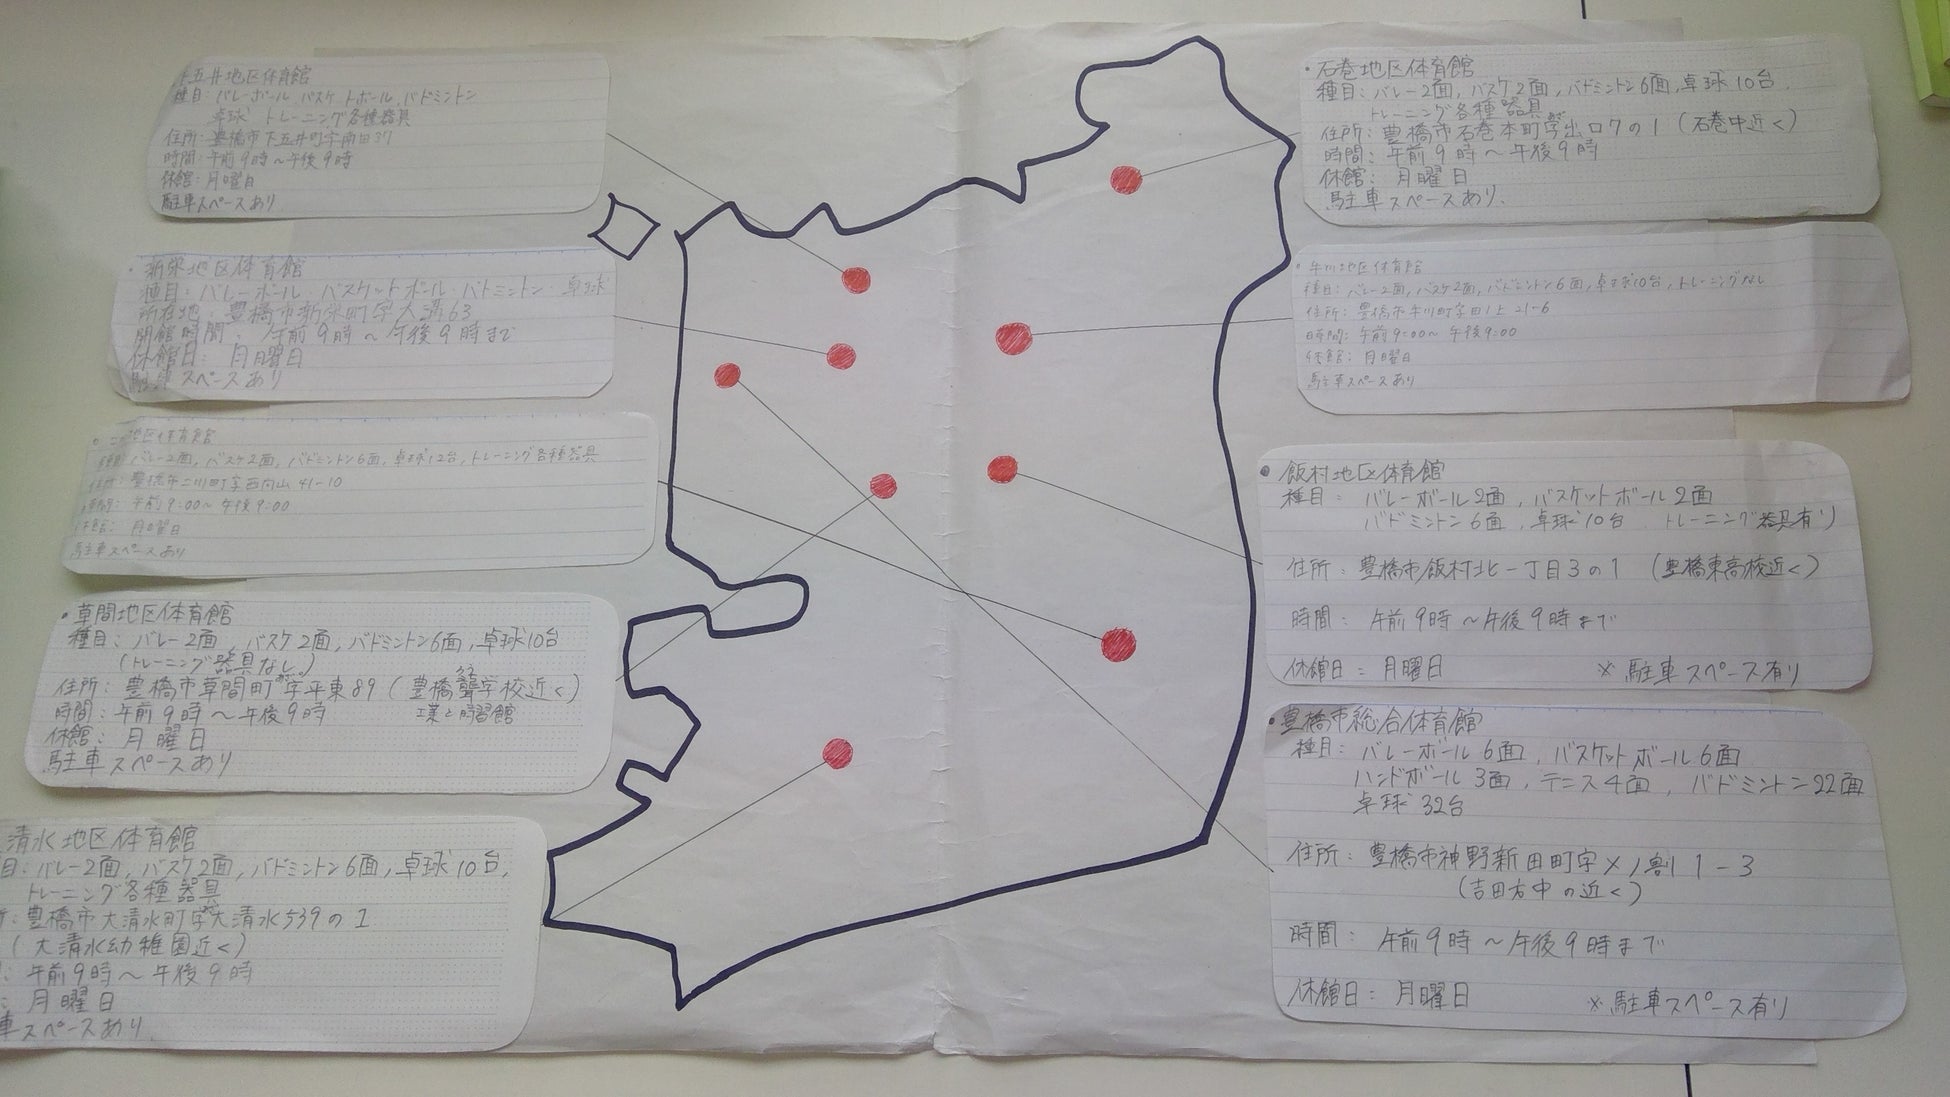 五井地区体育館
種目: バレーボール, バスケットボール, バドミントン
卓球 トレーニング各種器具
住所: 豊橋市下五井町字南田37
時間: 午前9時～午後9時
休館: 月曜日
駐車スペースあり
・新栄地区体育館
種目: バレーボール・バスケットボール・バトミントン・卓球
所在地: 豊橋市新栄町字大溝63
開館時間: 午前9時～午後9時まで
休館日: 月曜日
駐車スペースあり
地区体育館
種目: バレー2面, バスケ2面, バドミントン6面, 卓球12台, トレーニング各種器具
住所: 豊橋市二川町字西向山41-10
時間: 午前9:00～午後9:00
休館: 月曜日
駐車スペースあり
・草間地区体育館
種目: バレー2面, バスケ2面, バドミントン6面, 卓球10台
(トレーニング器具なし)
住所: 豊橋市草間町字平東89 (豊橋聾学校近く)
時間: 午前9時～午後9時 工業と時習館
休館: 月曜日
駐車スペースあり
清水地区体育館
目: バレー2面, バスケ2面, バドミントン6面, 卓球10台,
トレーニング各種器具
所: 豊橋市大清水町字大清水539の1
(大清水幼稚園近く)
: 午前9時～午後9時
: 月曜日
車スペースあり
・石巻地区体育館
種目: バレー2面, バスケ2面, バドミントン6面, 卓球10台,
トレーニング各種器具
住所: 豊橋市石巻本町字出口7の1 (石巻中近く)
時間: 午前9時～午後9時
休館: 月曜日
駐車スペースあり.
・牛川地区体育館
種目: バレー2面, バスケ2面, バドミントン6面, 卓球10台, トレーニングなし
住所: 豊橋市牛川町字田ノ上21-6
時間: 午前9:00～午後9:00
休館: 月曜日
駐車スペースあり
・飯村地区体育館
種目: バレーボール2面, バスケットボール2面
バドミントン6面, 卓球10台 トレーニング器具有り
住所: 豊橋市飯村北一丁目3の1 (豊橋東高校近く)
時間: 午前9時～午後9時まで
休館日: 月曜日 ※駐車スペース有り
・豊橋市総合体育館
種目: バレーボール6面, バスケットボール6面
ハンドボール3面, テニス4面, バドミントン22面
卓球32台
住所: 豊橋市神野新田町字メノ割1-3
(吉田方中の近く)
時間: 午前9時～午後9時まで
休館日: 月曜日 ※駐車スペース有り